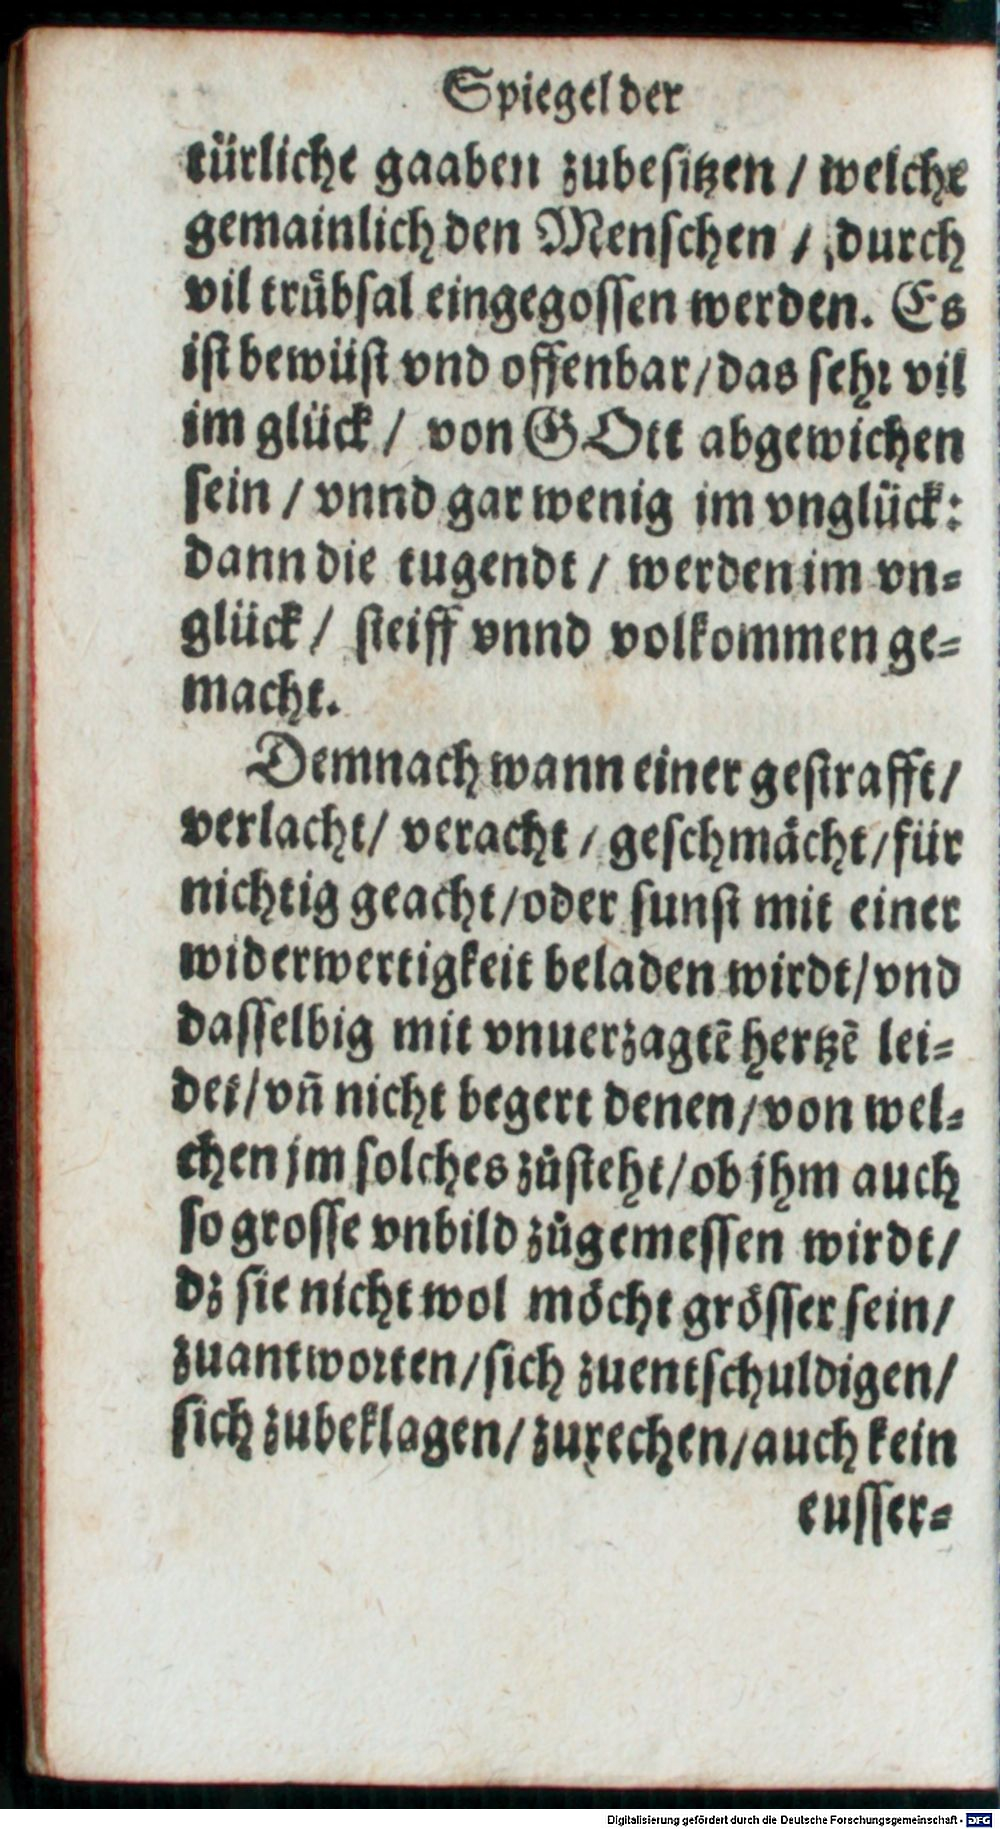 Spiegel der
türliche gaaben zubesitzen / welche
gemainlich den Menschen / durch
vil trübsal eingegossen werden. Es
ist bewüst vnd offenbar / das sehr vil
im glück / von GOtt abgewichen
sein / vnnd gar wenig im vnglück:
dann die tugendt / werden im vn-
glück / steiff vnnd volkommen ge-
macht.
Demnach wann einer gestrafft /
verlacht / veracht / geschmächt / für
nichtig geacht / oder sunst mit einer
widerwertigkeit beladen wirdt / vnd
dasselbig mit vnuerzagtē hertzē lei-
det / vn̄ nicht begert denen / von wel-
chen jm solches zůsteht / ob jhm auch
so grosse vnbild zůgemessen wirdt /
dz sie nicht wol möcht grösser sein /
zuantworten / sich zuentschuldigen /
sich zubeklagen / zurechen / auch kein
eusser-
Digitalisierung gefördert durch die Deutsche Forschungsgemeinschaft - DFG